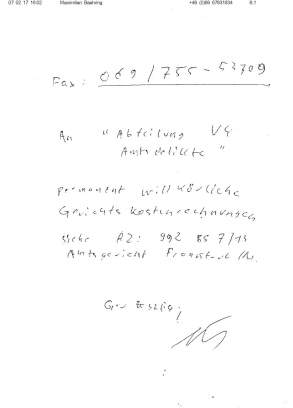 07 02 17 16:02 Maximilian Baehring +49 (0)69 67831634 S.1
Fax: 069/755-53709
An "Abteilung V4
Amtsdelikte"
permanent willkürliche
Gerichtskostenrechnungen
siehe AZ: 992 857/15
Amtsgericht Frankfurt /M.